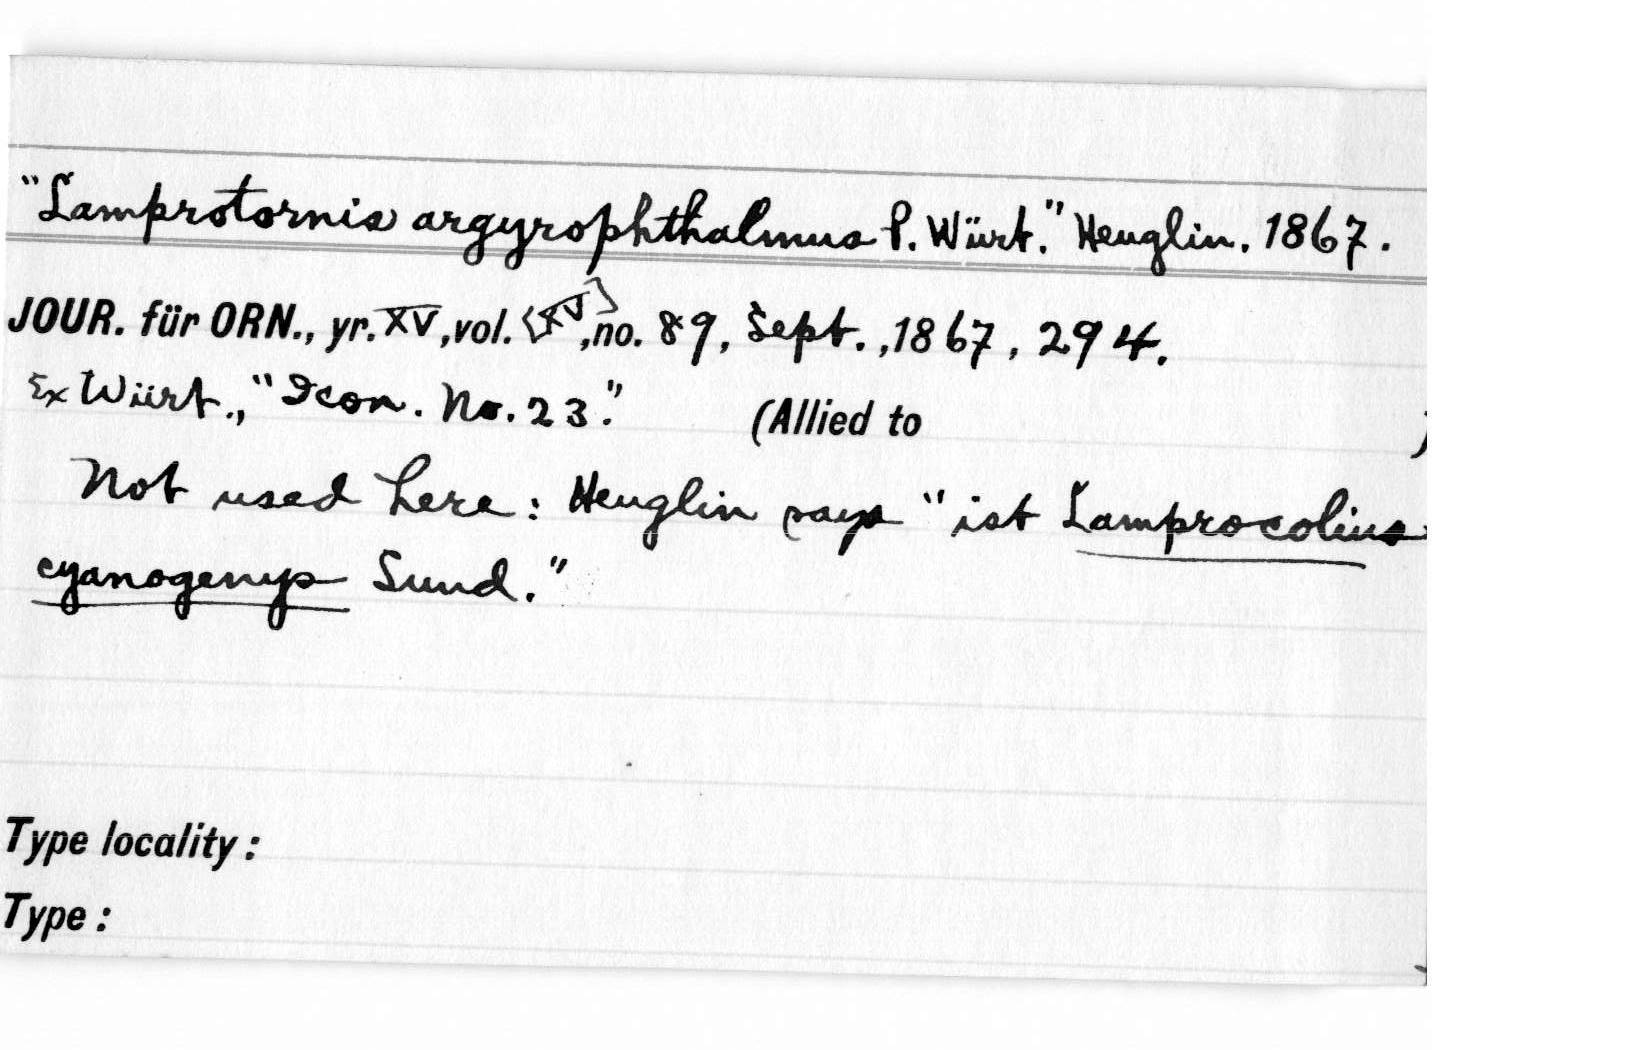 "Lamprotornis argyrophthalmus P. Würt." Heuglin. 1867.
JOUR. für ORN., yr. XV, vol. <XV>, no. 89, Sept., 1867, 294.
Ex Würt., "Icon. No. 23." (Allied to )
Not used here: Heuglin says "ist Lamprocolius
cyanogenys Sund."
Type locality:
Type: